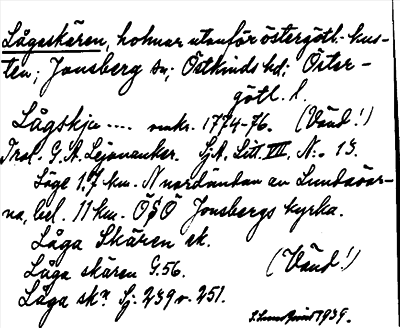 Lågaskären, holmar utanför östergötl. kus-
ten; Jonsberg sn; Östkinds hd; Öster-
götl. l.
Lågskju .... omkr. 1774-76. (Vänd!)
Trol. G. A. Lejonanker. Sj.A. Litt. VII, N:o 13.
Läge 1,7 km. N nordändan av Lundaöar-
na, bel. 11 km. OSO Jonsbergs kyrka.
Låga Skären ek.
Låga skären G. 56. (Vänd!)
Låga skn Sj. 239 o. 251.
1939.